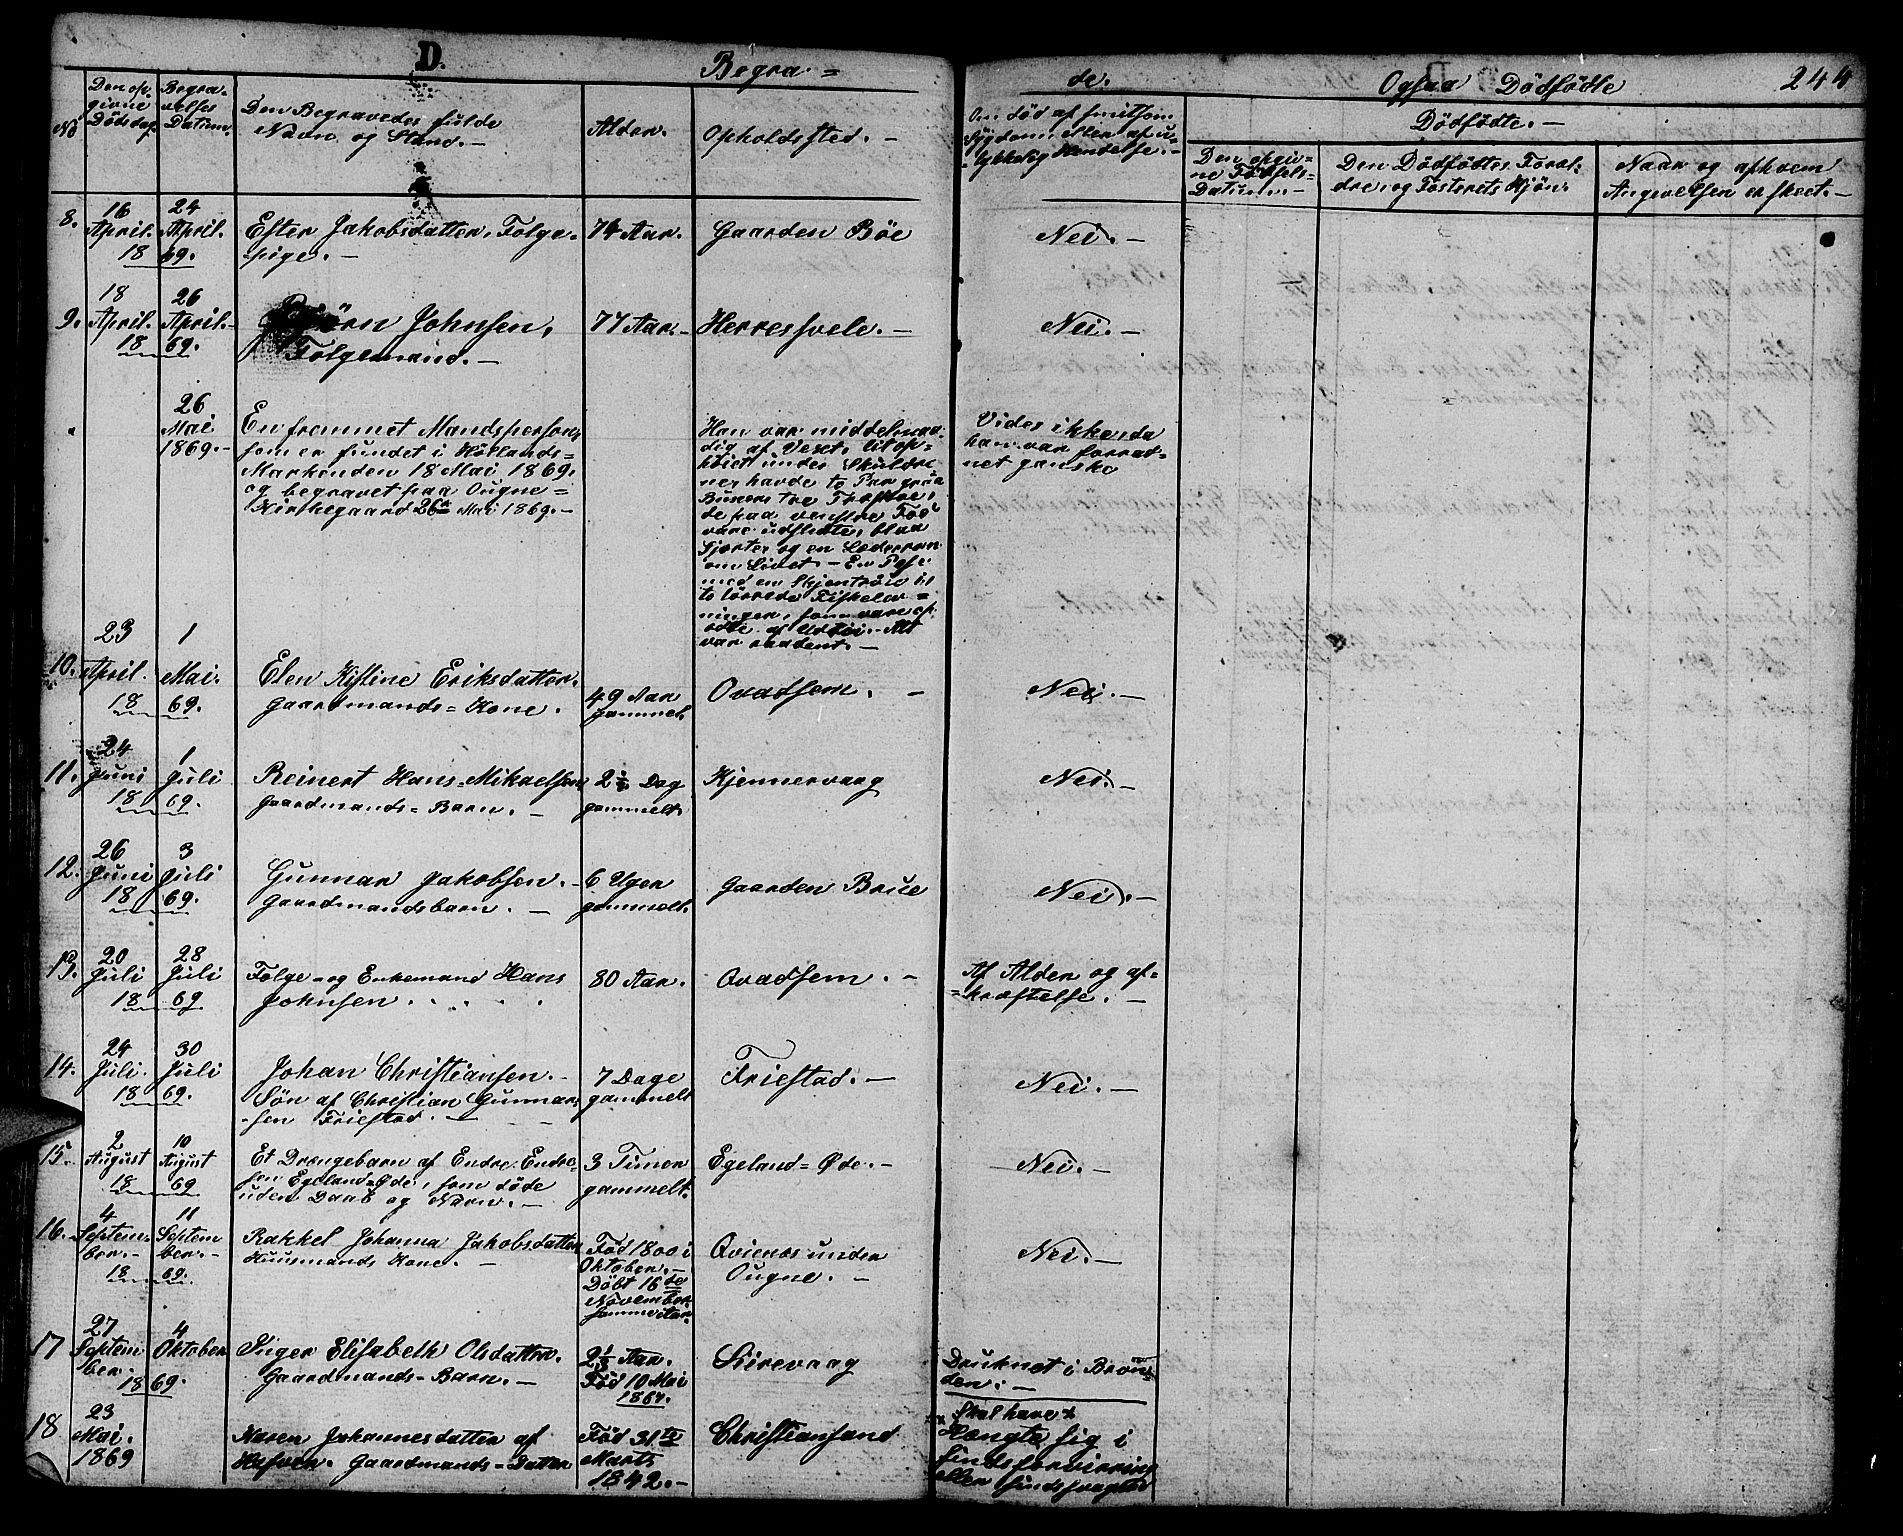 D.
Begra=
de.
Ogsaa Dödfödte
244
No
Den op-
givne
Dödsdag.
Begra-
velses
Datum.
Den Begravedes fulde
Navn og Stand.-
Alder.
Opholdssted.-
Om död af smitsom
Sygdom, eller af u=
lykkelig Hendelse.-
Dödfödte.-
Den opgiv=
ne Födsels-
Datum.-
Den Dödfödtes Foræl-
dre, og Fosterets Kjön.
Naar og af hvem
Angivelsen er skeet.-
8.
16
April.
24
April.
18 69.
Ester Jakobsdatter, Folge-
pige.-
74 Aar.
Gaarden Böe
Nei.-
9.
18
April.
26
April.-
18 69.
Björn Johnsen,
Folgemand.-
77 Aar-
Herresvele.-
Nei.-
26
Mai
1869.-
En fremmet Mandsperson,
som er fundet i Hötlands=
Mark den 18 Mai 1869.
og begravet paa Ougne=
Kirkegaard 26de Mai 1869.-
Han var middelmaa-
dig af Vext, lit op-
höiet under Skuldre
ner havde to Par graa
Buxer
de paa venstre Fod
vare udslidte, blaa
Sjorte og en Læderrem
om Livet.- En Pose
med en
to törrede Fiske
ninger, som vare op
af
var raadent.-
Vides ikke, da
han var forraad=
net ganske
10.
23
April.
1
Mai.
18 69.
Elen Kistine Eriksdatter.
Gaardmands=Kone.
49 Aar
gammel.
Ovadsem.-
Nei.-
11.
24
Juni
1
Juli
18 69.
Reinert Hans=Mikaelsen
Gaardmands=Barn.-
2½ Dag
gammelt.
Kjennervaag
Nei.-
12.
26
Juni
3
Juli
18 69.
Gunnar Jakobsen.-
Gaardmandsbarn.-
6 Uger
gammelt.
Gaarden Brue
Nei.-
13.
20
Juli
28
Juli
18 69
Folge-og Enkemand Hans
Johnsen.
80 Aar.
Ovadsem.-
Af Alder og af=
=kræftelse.-
14.
24
Juli.
30
Juli
18 69.
Johan Christiansen.-
Sön af Christian Gunnar-
-sen Friestad.-
7 Dage
gammelt
Friestad.-
Nei.-
15.
2
August
10
August
18 69
Et Drengebarn af Endre Endre-
sen Egeland=Øde, som döde
uden Daab og Navn.-
3 Timer
gammelt.
Egeland=Øde.-
Nei.-
16.
4
Septem-
ber.-
11
Septem
ber.-
18 69.
Rakkel Johanna Jakobsdatter
Huusmands Kone.-
Föd 1800 i
Oktober.-
Döbt 16de
November
samme Aar.
Qvienes under
Ougne.-
Nei.-
17
27
Septem
ber.
4
Oktober
18 69.
Inger Elisabeth Olsdatter.
Gaardmands-Barn.-
2⅓ Aar.
Föd 10 Mai
1867.
Siirevaag
Druknet i Brön=
den.-
18
23
Mai.
1869
Karen Johannesdatter af
Gaardmands=Datter
Föd 31te
Marts
1842.-
Christiansand
Skal have
Hængte sig i
Sindsforvirring
eller Sindssvaghed